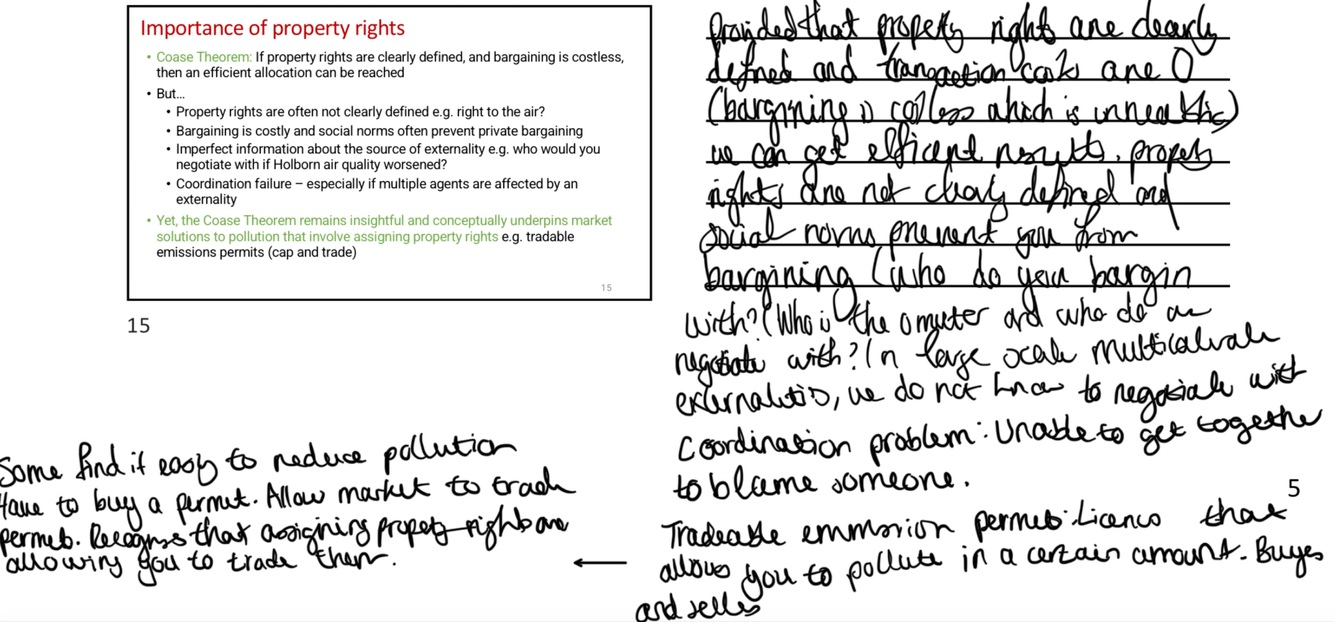 Importance of property rights
• Coase Theorem: If property rights are clearly defined, and bargaining is costless,
then an efficient allocation can be reached
• But...
• Property rights are often not clearly defined e.g. right to the air?
• Bargaining is costly and social norms often prevent private bargaining
• Imperfect information about the source of externality e.g. who would you
negotiate with if Holborn air quality worsened?
• Coordination failure – especially if multiple agents are affected by an
externality
• Yet, the Coase Theorem remains insightful and conceptually underpins market
solutions to pollution that involve assigning property rights e.g. tradable
emissions permits (cap and trade)
15
15
Provided that property rights are clearly
defined and transaction costs are 0
(bargining is costless which is
we can get efficient results. property
rights are not clearly defined and
social norms prevent you from
bargining (who do you bargin
with? (Who is the and who do
negotiate with? In large scale
externalities, we do not know to negotiate with
Coordination problem: Unable to get together
to blame someone.
5
Tradeable permits: Licence that
allows you to pollute in a certain amount. Buyes
and selles
←
Some find it easy to reduce pollution
Have to buy a permit. Allow market to trade
permits. that assigning property right are
allowing you to trade them.